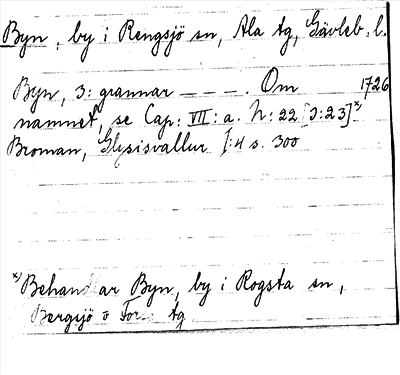 Byn, by i Rengsjö sn, Ala tg, Gävleb. l.
Byn, 3: grannar — — —. Om 1726
namnet, se Cap: VII: a. N: 22 [ɔ: 23] x)
Broman, Glysisvallur I: 4 s. 300
x) Behandlar Byn, by i Rogsta sn,
Bergsjö o Forsa tg